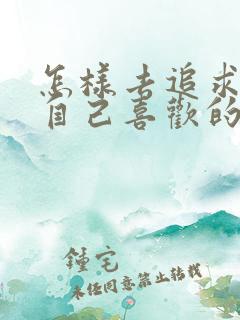 怎樣去追求
自己喜歡的
鍾宅
未经同意禁止转载